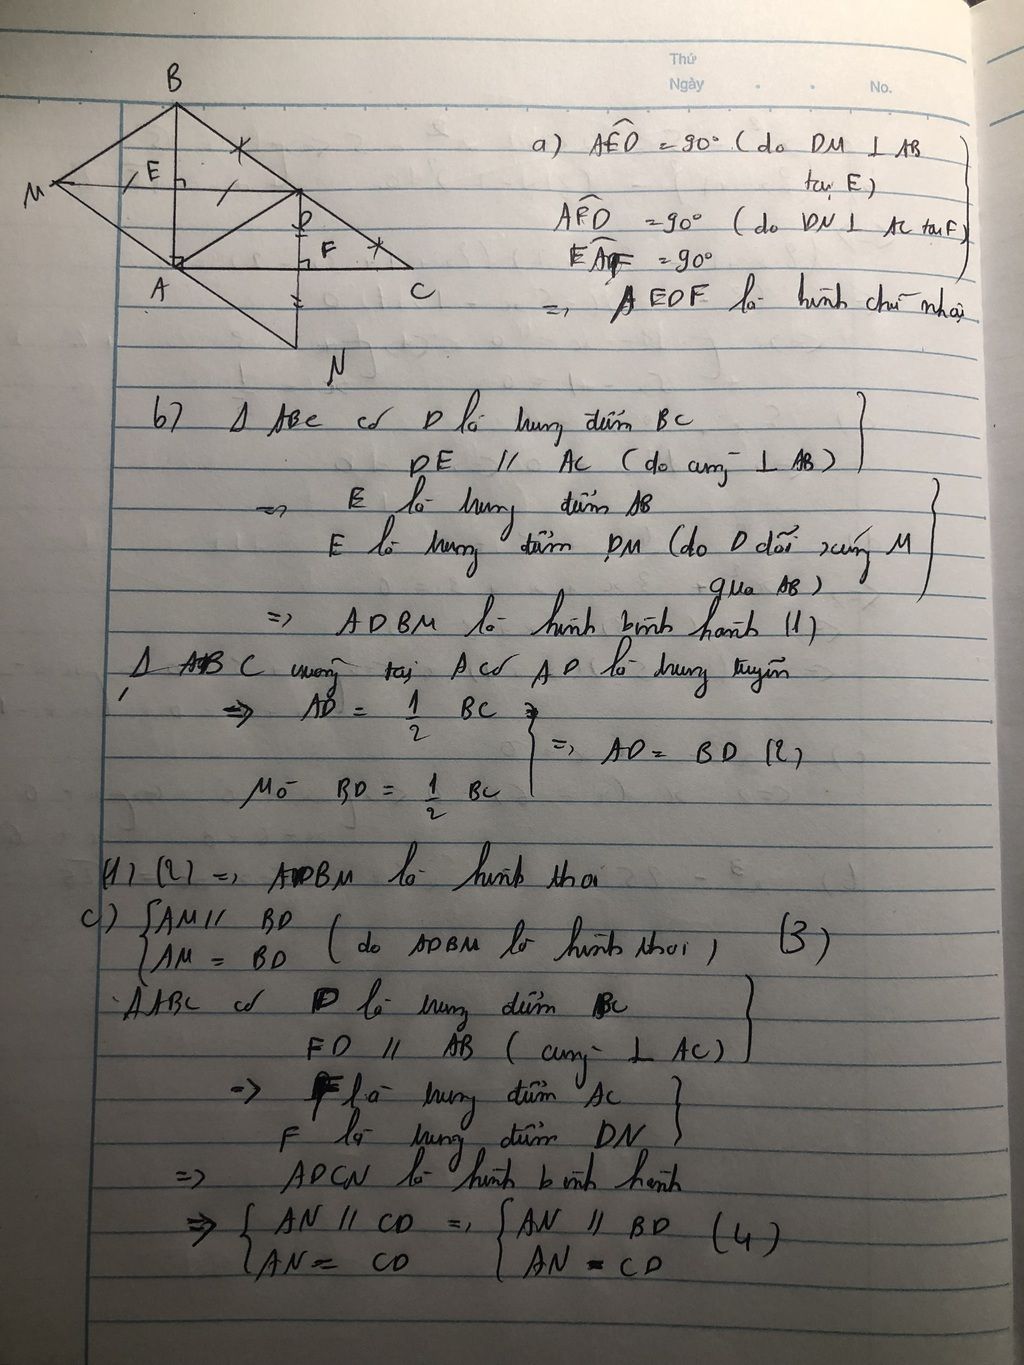 Thứ
Ngày . . No.
B
M
E
D
F
A
C
N
a) AÊD = 90° (do DM ⊥ AB
tại E)
AF̂D = 90° (do DN ⊥ AC tại F)
EÂF = 90°
=> AEDF là hình chữ nhật
b) Δ ABC có D là trung điểm BC
DE // AC (do cùng ⊥ AB)
=> E là trung điểm AB
E là trung điểm DM (do D đối xứng M
qua AB)
=> ADBM là hình bình hành (1)
Δ ABC vuông tại A có AD là trung tuyến
=> AD = 1/2 BC
=> AD = BD (2)
Mà BD = 1/2 BC
(1) (2) => ADBM là hình thoi
c) { AM // BD
{ AM = BD (do ADBM là hình thoi) (3)
ΔABC có D là trung điểm BC
FD // AB (cùng ⊥ AC)
=> F là trung điểm AC
F là trung điểm DN
=> ADCN là hình bình hành
=> { AN // CD => { AN // BD (4)
{ AN = CD { AN = CD